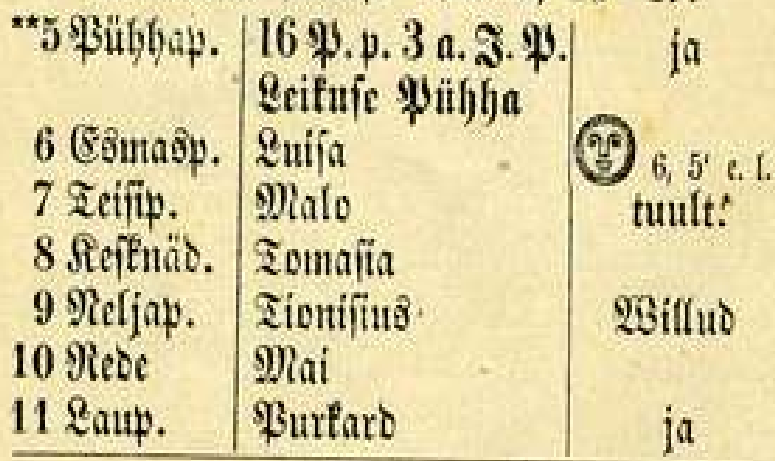 **5 Pühhap. 16 P. p. 3 a. J. P. ja
Leikuse Pühha
6 Esmasp. Luisa 6, 5' e. l.
7 Teisip. Malo tuult.
8 Kesknäd. Tomasia
9 Neljap. Tionisius Willud
10 Rede Mai
11 Laup. Purkard ja